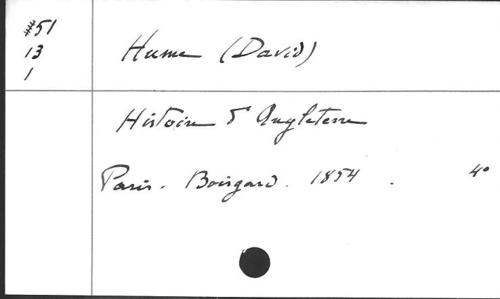 #51
13
1
Hume (David)
Histoire d'Angleterre
Paris. Boisgard. 1854. 4°